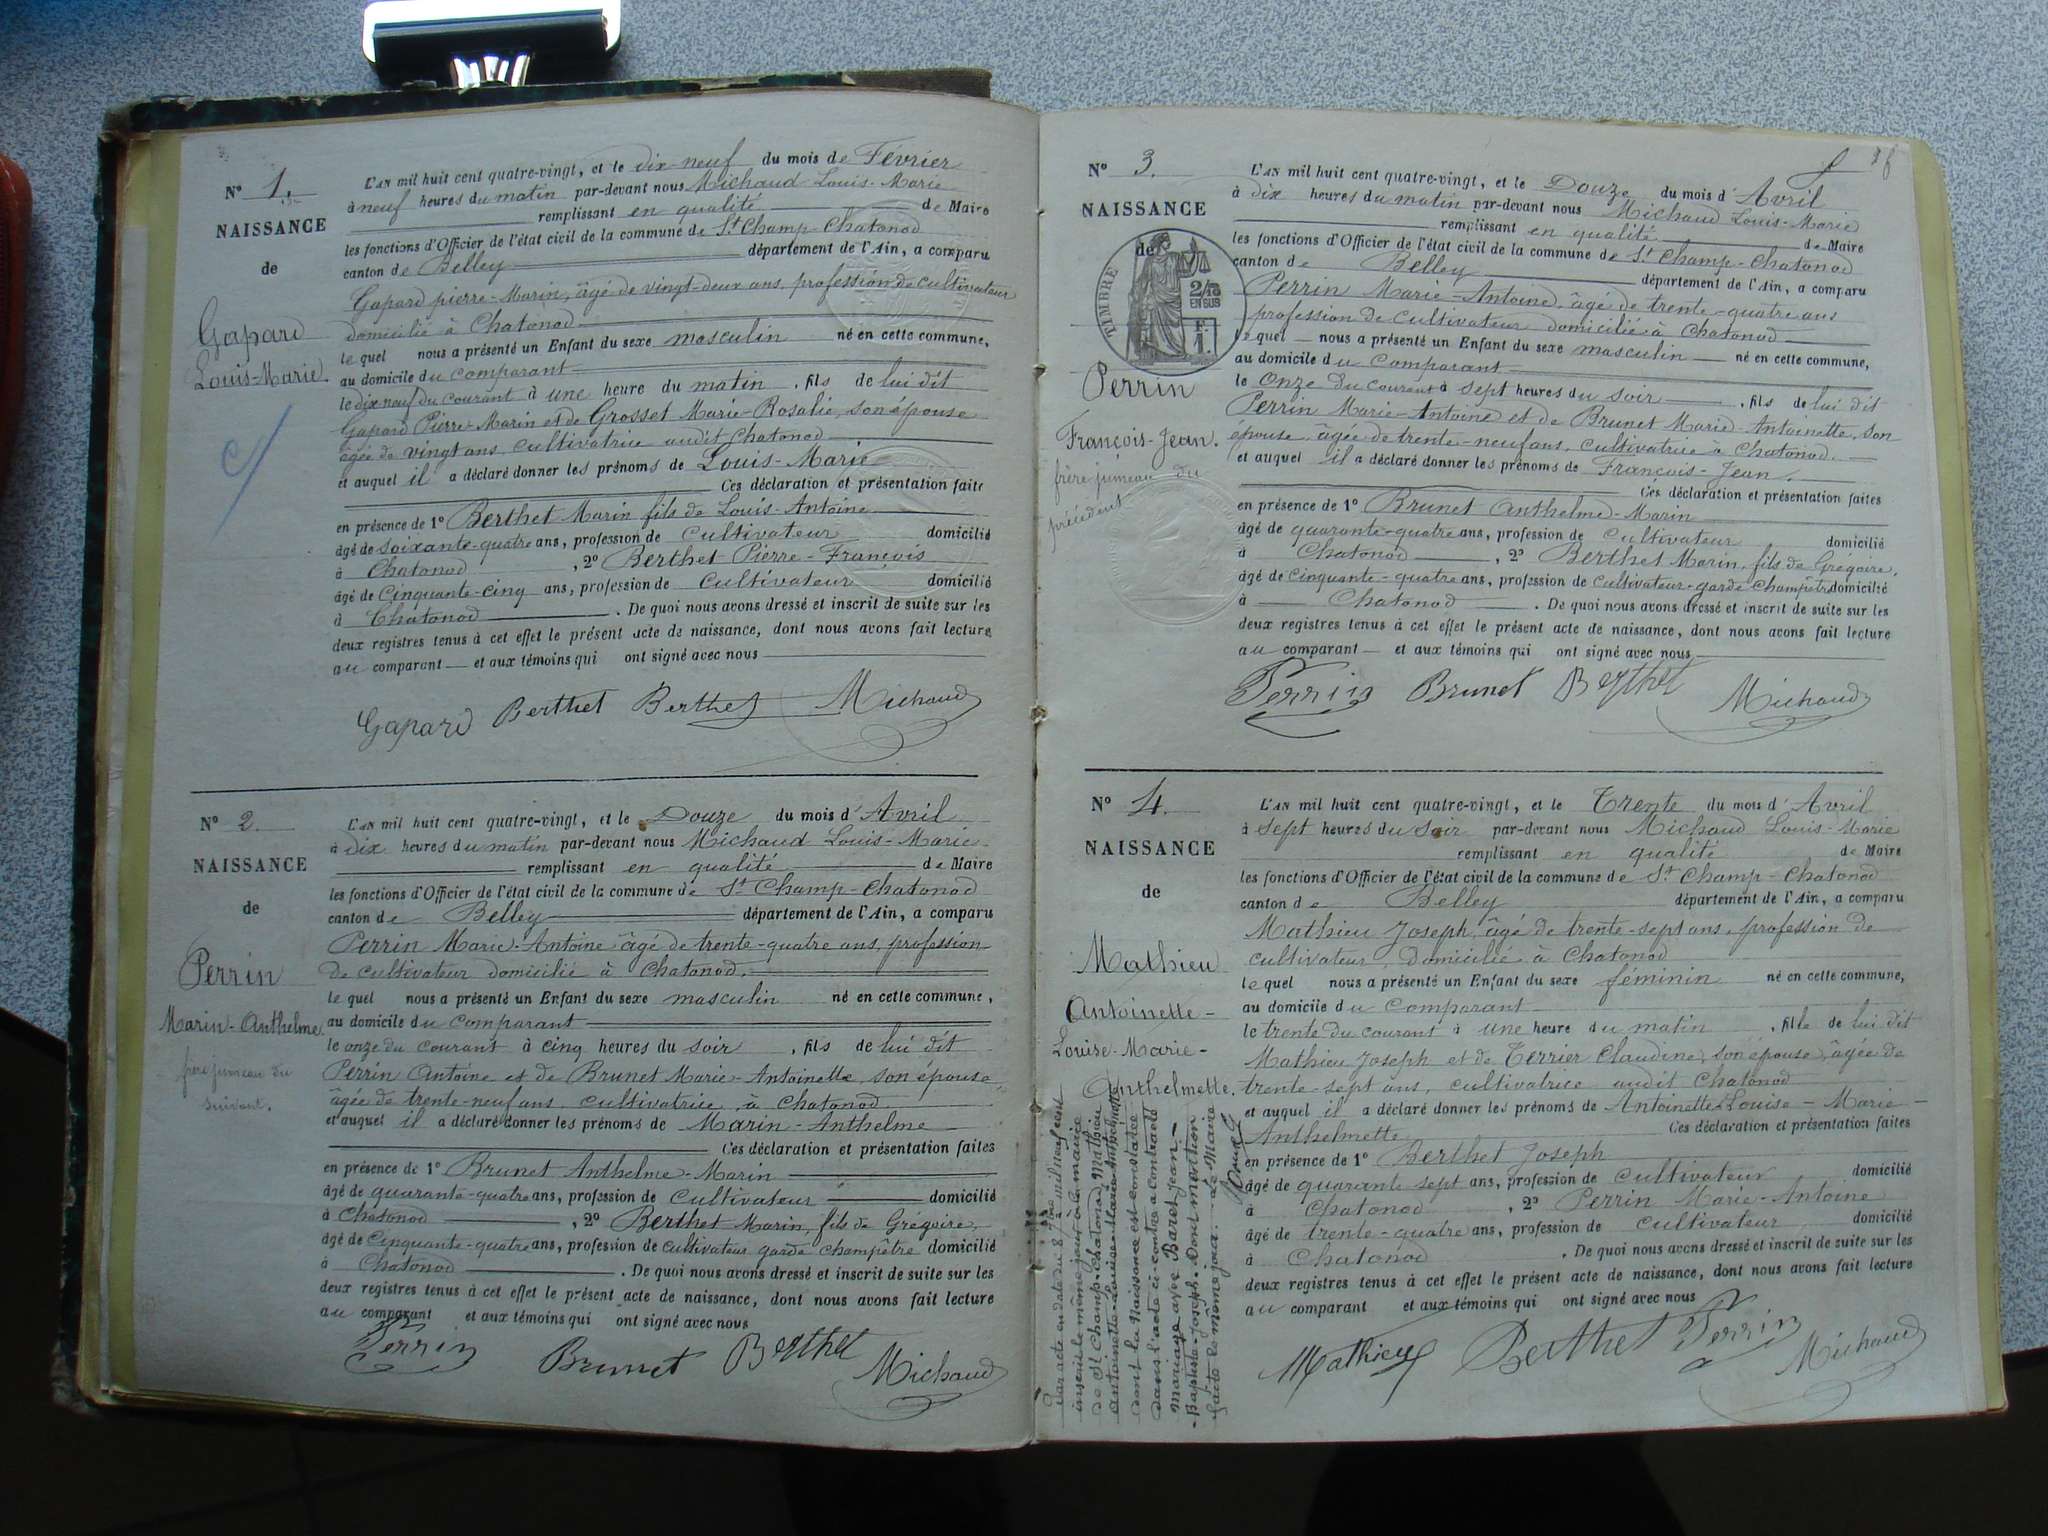 N° 1.
NAISSANCE
de
Gapard
Louis-Marie.
L'AN mil huit cent quatre-vingt, et le dix-neuf du mois de Février
à neuf heures du matin par-devant nous Michaud Louis-Marie
remplissant en qualité de Maire
les fonctions d'Officier de l'état civil de la commune de St Champ-Chatonod
canton de Belley département de l'Ain, a comparu
Gapard pierre-Marin, âgé de vingt-deux ans, profession de cultivateur
domicilié à Chatonod
le quel nous a présenté un Enfant du sexe masculin né en cette commune,
au domicile du comparant
le dix neuf du courant à une heure du matin, fils de lui dit
Gapard Pierre-Marin et de Grosset Marie-Rosalie, son épouse
âgée de vingt ans, cultivatrice audit Chatonod
et auquel il a déclaré donner les prénoms de Louis-Marie
Ces déclaration et présentation faite
en présence de 1° Berthet Marin fils de Louis-Antoine
âgé de soixante-quatre ans, profession de cultivateur domicilié
à Chatonod, 2° Berthet Pierre-François
âgé de Cinquante-cinq ans, profession de cultivateur domicilié
à Chatonod. De quoi nous avons dressé et inscrit de suite sur les
deux registres tenus à cet effet le présent acte de naissance, dont nous avons fait lecture
au comparant et aux témoins qui ont signé avec nous
Gapard Berthet Berthet Michaud
N° 2.
NAISSANCE
de
Perrin
Marin-Anthelme.
frère jumeau du
suivant.
L'AN mil huit cent quatre-vingt, et le Douze du mois d'Avril
à dix heures du matin par-devant nous Michaud Louis-Marie
remplissant en qualité de Maire
les fonctions d'Officier de l'état civil de la commune de St Champ-Chatonod
canton de Belley département de l'Ain, a comparu
Perrin Marie-Antoine âgé de trente-quatre ans, profession
de cultivateur domicilié à Chatonod.
le quel nous a présenté un Enfant du sexe masculin né en cette commune,
au domicile du comparant
le onze du courant à cinq heures du soir, fils de lui dit
Perrin Antoine et de Brunet Marie-Antoinette, son épouse
âgée de trente-neuf ans, cultivatrice à Chatonod
et auquel il a déclaré donner les prénoms de Marin-Anthelme
Ces déclaration et présentation faites
en présence de 1° Brunet Anthelme-Marin
âgé de quarante-quatre ans, profession de cultivateur domicilié
à Chatonod, 2° Berthet Marin, fils de Grégoire,
âgé de Cinquante-quatre ans, profession de cultivateur garde champêtre domicilié
à Chatonod. De quoi nous avons dressé et inscrit de suite sur les
deux registres tenus à cet effet le présent acte de naissance, dont nous avons fait lecture
au comparant et aux témoins qui ont signé avec nous
Perrin Brunet Berthet Michaud
N° 3.
NAISSANCE
de
TIMBRE
2/10
EN SUS
Perrin
François-Jean.
frère jumeau du
précédent
L'AN mil huit cent quatre-vingt, et le Douze du mois d'Avril
à dix heures du matin par-devant nous Michaud Louis-Marie
remplissant en qualité de Maire
les fonctions d'Officier de l'état civil de la commune de St Champ-Chatonod
canton de Belley département de l'Ain, a comparu
Perrin Marie-Antoine, âgé de trente-quatre ans
profession de cultivateur domicilié à Chatonod
le quel nous a présenté un Enfant du sexe masculin né en cette commune,
au domicile du comparant
le onze du courant à sept heures du soir, fils de lui dit
Perrin Marie-Antoine et de Brunet Marie-Antoinette, son
épouse, âgée de trente-neuf ans, cultivatrice à Chatonod.
et auquel il a déclaré donner les prénoms de François-Jean.
Ces déclaration et présentation faites
en présence de 1° Brunet Anthelme-Marin
âgé de quarante-quatre ans, profession de cultivateur domicilié
à Chatonod, 2° Berthet Marin, fils de Grégoire,
âgé de cinquante-quatre ans, profession de cultivateur-garde champêtre domicilié
à Chatonod. De quoi nous avons dressé et inscrit de suite sur les
deux registres tenus à cet effet le présent acte de naissance, dont nous avons fait lecture
au comparant et aux témoins qui ont signé avec nous
Perrin Brunet Berthet Michaud
N° 4.
NAISSANCE
de
Mathieu
Antoinette-
Louise-Marie-
Anthelmette.
L'AN mil huit cent quatre-vingt, et le Trente du mois d'Avril
à sept heures du soir par-devant nous Michaud Louis-Marie
remplissant en qualité de Maire
les fonctions d'Officier de l'état civil de la commune de St Champ-Chatonod
canton de Belley département de l'Ain, a comparu
Mathieu Joseph, âgé de trente-sept ans, profession de
cultivateur domicilié à Chatonod
le quel nous a présenté un Enfant du sexe féminin né en cette commune,
au domicile du comparant
le trente du courant à une heure du matin, fille de lui dit
Mathieu Joseph et de Terrier Claudine, son épouse, âgée de
trente-sept ans, cultivatrice audit Chatonod
et auquel il a déclaré donner les prénoms de Antoinette-Louise-Marie-
Anthelmette Ces déclaration et présentation faites
en présence de 1° Berthet Joseph
âgé de quarante sept ans, profession de cultivateur domicilié
à Chatonod, 2° Perrin Marie-Antoine
âgé de trente-quatre ans, profession de cultivateur domicilié
à Chatonod. De quoi nous avons dressé et inscrit de suite sur les
deux registres tenus à cet effet le présent acte de naissance, dont nous avons fait lecture
au comparant et aux témoins qui ont signé avec nous
Mathieu Berthet Perrin Michaud
Par acte en date du 8 mil neuf cent
inscrit le même jour à la mairie
de St Champ-Chatonod Mathieu
Antoinette-Louise-Marie-Anthelmette
dont la Naissance est constatée
dans l'acte ci-contre a contracté
mariage avec Baret Jean-
-Baptiste-Joseph. Dont mention
faite le même jour. Le Maire